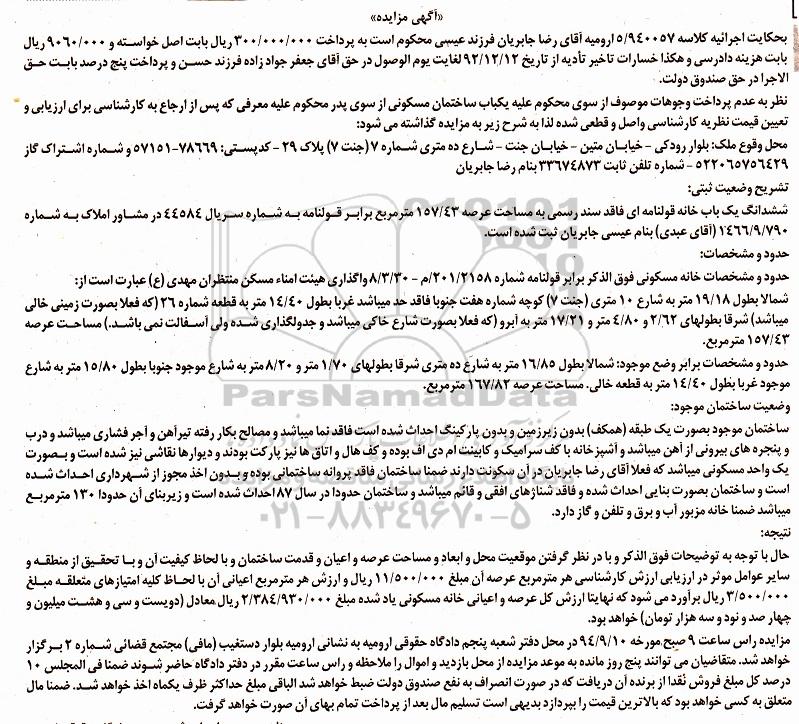 «آگهی مزایده»
بحکایت اجرائیه کلاسه ۵/۹۴۰۰۵۷ ارومیه آقای رضا جابریان فرزند عیسی محکوم است به پرداخت ۳۰۰/۰۰۰/۰۰۰ ریال بابت اصل خواسته و ۹۰۶۰/۰۰۰ ریال
بابت هزینه دادرسی و هکذا خسارات تاخیر تأدیه از تاریخ ۹۲/۱۲/۱۲ لغایت یوم الوصول در حق آقای جعفر جواد زاده فرزند حسن و پرداخت پنج درصد بابت حق
الاجرا در حق صندوق دولت.
نظر به عدم پرداخت وجوهات موصوف از سوی محکوم علیه یکباب ساختمان مسکونی از سوی پدر محکوم علیه معرفی که پس از ارجاع به کارشناسی برای ارزیابی و
تعیین قیمت نظریه کارشناسی واصل و قطعی شده لذا به شرح زیر به مزایده گذاشته می شود:
محل وقوع ملک: بلوار رودکی – خیابان متین – خیابان جنت – شارع ده متری شماره ۷ (جنت ۷) پلاک ۲۹ – کدپستی: ۷۸۶۶۹-۵۷۱۵۱ و شماره اشتراک گاز
۵۲۲۰۶۵۷۵۶۴۲۹ – شماره تلفن ثابت ۳۳۶۷۴۸۷۳ بنام رضا جابریان
تشریح وضعیت ثبتی:
ششدانگ یک باب خانه قولنامه ای فاقد سند رسمی به مساحت عرصه ۱۵۷/۴۳ مترمربع برابر قولنامه به شماره سریال ۴۴۵۸۴ در مشاور املاک به شماره
۱۴۶۶/۹/۷۹۰ (آقای عبدی) بنام عیسی جابریان ثبت شده است.
حدود و مشخصات:
حدود و مشخصات خانه مسکونی فوق الذکر برابر قولنامه شماره ۲۰۱/۲۱۵۸/م – ۸/۳/۳۰ واگذاری هیئت امناء مسکن منتظران مهدی (ع) عبارت است از:
شمالا بطول ۱۹/۱۸ متر به شارع ۱۰ متری (جنت ۷) کوچه شماره هفت جنوبا فاقد حد میباشد غربا بطول ۱۴/۴۰ متر به قطعه شماره ۲۶ (که فعلا بصورت زمینی خالی
میباشد) شرقا بطولهای ۲/۶۲ و ۴/۸۰ متر و ۱۷/۲۱ متر به آبرو (که فعلا بصورت شارع خاکی میباشد و جدولگذاری شده ولی آسفالت نمی باشد.) مساحت عرصه
۱۵۷/۴۳ مترمربع.
حدود و مشخصات برابر وضع موجود: شمالا بطول ۱۶/۸۵ متر به شارع ده متری شرقا بطولهای ۱/۷۰ متر و ۸/۲۰ متر به شارع موجود جنوبا بطول ۱۵/۸۰ متر به شارع
موجود غربا بطول ۱۴/۴۰ متر به قطعه خالی. مساحت عرصه ۱۶۷/۸۲ مترمربع.
وضعیت ساختمان موجود:
ساختمان موجود بصورت یک طبقه (همکف) بدون زیرزمین و بدون پارکینگ احداث شده است فاقد نما میباشد و مصالح بکار رفته تیرآهن و آجر فشاری میباشد و درب
و پنجره های بیرونی از آهن میباشد و آشپزخانه با کف سرامیک و کابینت ام دی اف بوده و کف هال و اتاق ها نیز پارکت بودند و دیوارها نقاشی نیز شده است و بصورت
یک واحد مسکونی میباشد که فعلا آقای رضا جابریان در آن سکونت دارند ضمنا ساختمان فاقد پروانه ساختمانی بوده و بدون اخذ مجوز از شهرداری احداث شده
است و ساختمان بصورت بنایی احداث شده و فاقد شناژهای افقی و قائم میباشد و ساختمان حدودا در سال ۸۷ احداث شده است و زیربنای آن حدودا ۱۳۰ مترمربع
میباشد ضمنا خانه مزبور آب و برق و تلفن و گاز دارد.
نتیجه:
حال با توجه به توضیحات فوق الذکر و با در نظر گرفتن موقعیت محل و ابعاد و مساحت عرصه و اعیان و قدمت ساختمان و با لحاظ کیفیت آن و با تحقیق از منطقه و
سایر عوامل موثر در ارزیابی ارزش کارشناسی هر مترمربع عرصه آن مبلغ ۱۱/۵۰۰/۰۰۰ ریال و ارزش هر مترمربع اعیانی آن با لحاظ کلیه امتیازهای متعلقه مبلغ
۳/۵۰۰/۰۰۰ ریال برآورد می شود که نهایتا ارزش کل عرصه و اعیانی خانه مسکونی یاد شده مبلغ ۲/۳۸۴/۹۳۰/۰۰۰ ریال معادل (دویست و سی و هشت میلیون و
چهار صد و نود و سه هزار تومان) خواهد بود.
مزایده راس ساعت ۹ صبح مورخه ۹۴/۹/۱۰ در محل دفتر شعبه پنجم دادگاه حقوقی ارومیه به نشانی ارومیه بلوار دستغیب (مافی) مجتمع قضائی شماره ۲ برگزار
خواهد شد. متقاضیان می توانند پنج روز مانده به موعد مزایده از محل بازدید و اموال را ملاحظه و راس ساعت مقرر در دفتر دادگاه حاضر شوند ضمنا فی المجلس ۱۰
درصد کل مبلغ فروش نقدا از برنده آن دریافت که در صورت انصراف به نفع صندوق دولت ضبط خواهد شد الباقی مبلغ حداکثر ظرف یکماه اخذ خواهد شد. ضمنا مال
متعلق به کسی خواهد بود که بالاترین قیمت را بپردازد بدیهی است تسلیم مال بعد از پرداخت تمام بهای آن صورت خواهد گرفت.
ParsNamadData
۰۲۱-۸۸۳۴۹۶۷۰-۵